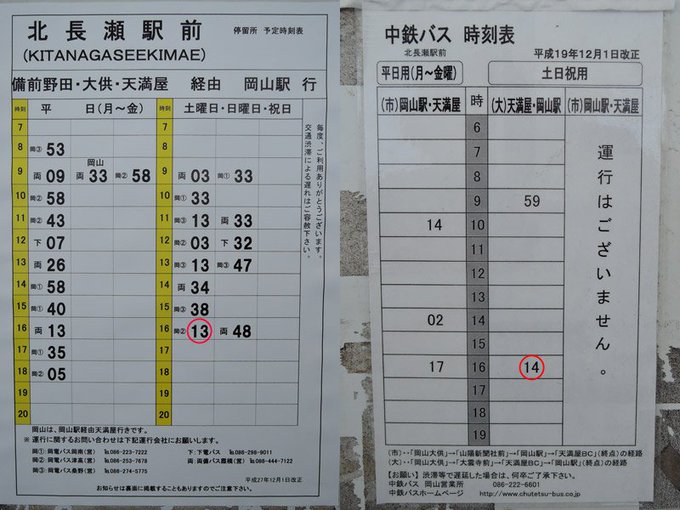 北長瀬駅前
停留所 予定時刻表
(KITANAGASEEKIMAE)
備前野田・大供・天満屋 経由 岡山駅 行
時刻 平 日(月～金) 時刻 土曜日・日曜日・祝日
7 7
8 岡③ 53 8
9 両 09 両 岡山 33 岡② 58 9 両 03 岡① 33
10 岡② 58 10 岡① 33
11 岡② 43 11 岡③ 13 両 33
12 下 07 12 岡② 03 下 32
13 両 26 13 岡③ 13 岡③ 47
14 岡① 58 14 両 34
15 岡① 40 15 岡③ 38
16 両 13 16 岡② 13 両 48
17 岡① 35 17
18 岡② 05 18
19 19
20 20
毎度、ご利用ありがとうございます。
交通渋滞による遅れはご容赦下さい。
岡山は、岡山駅経由天満屋行きです。
※ 運行に関するお問い合わせは下記運行会社にお願いします。
岡①:岡電バス岡南(営) ℡086-223-7222 下:下電バス ℡086-298-9011
岡②:岡電バス津高(営) ℡086-253-7678 両:両備バス西大寺(営) ℡086-444-7122
岡③:岡電バス桑野(営) ℡086-274-5775
平成27年12月1日改正
お知らせは裏面に掲載することもありますのでご注意下さい。
中鉄バス 時刻表
北長瀬駅前
平成19年12月1日改正
平日用(月～金曜) 土日祝用
(市)岡山駅・天満屋 時 (大)天満屋・岡山駅 (市)岡山駅・天満屋
6
7
8
9 59
14 10
11
12
13
02 14
15
17 16 14
17
18
19
運行はございません。
(市)‥「岡山大供」→「山陽新聞社前」→「岡山駅」→「天満屋BC」(終点)の経路
(大)‥「岡山大供」→「大雲寺前」→「天満屋BC」→「岡山駅」(終点)の経路
【お願い】渋滞等で遅延した場合は、何卒ご了承下さい。
中鉄バス 岡山営業所 086-222-6601
中鉄バスホームページ http://www.chutetsu-bus.co.jp